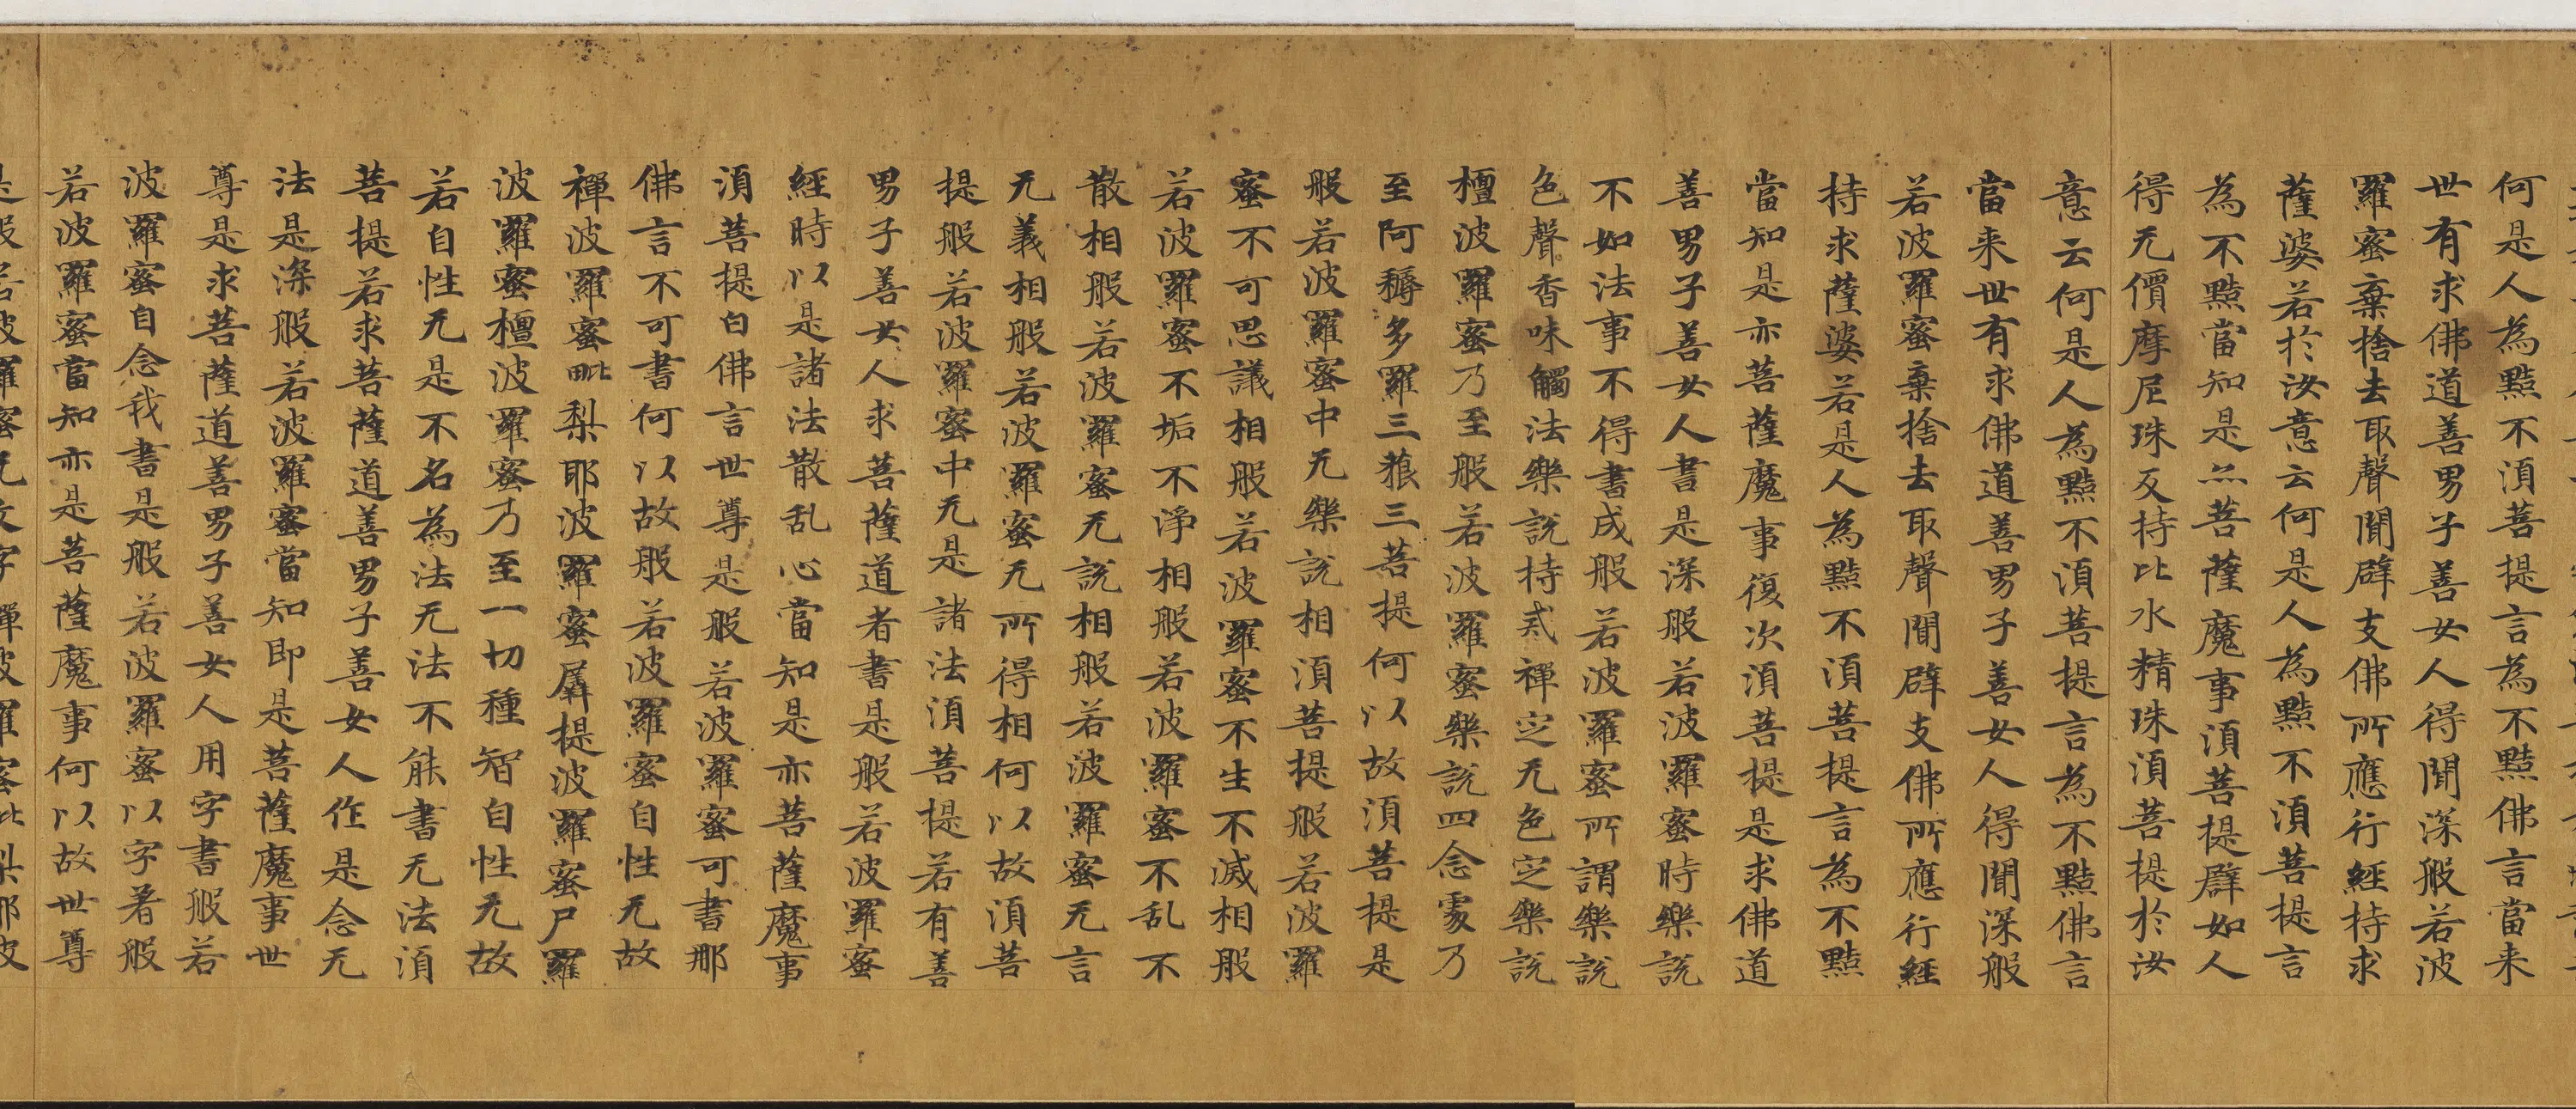 何是人為黠不須菩提言為不黠佛言當来
世有求佛道善男子善女人得聞深般若波
羅蜜棄捨去取聲聞辟支佛所應行經持求
薩婆若於汝意云何是人為黠不須菩提言
為不黠當知是亦菩薩魔事須菩提譬如人
得无價摩尼珠反持比水精珠須菩提於汝
意云何是人為黠不須菩提言為不黠佛言
當来世有求佛道善男子善女人得聞深般
若波羅蜜棄捨去取聲聞辟支佛所應行經
持求薩婆若是人為黠不須菩提言為不黠
當知是亦菩薩魔事復次須菩提是求佛道
善男子善女人書是深般若波羅蜜時樂說
不如法事不得書成般若波羅蜜所謂樂說
色聲香味觸法樂說持貳禪定无色定樂說
檀波羅蜜乃至般若波羅蜜樂說四念處乃
至阿耨多羅三藐三菩提何以故須菩提是
般若波羅蜜中无樂說相須菩提般若波羅
蜜不可思議相般若波羅蜜不生不滅相般
若波羅蜜不垢不淨相般若波羅蜜不乱不
散相般若波羅蜜无說相般若波羅蜜无言
无義相般若波羅蜜无所得相何以故須菩
提般若波羅蜜中无是諸法須菩提若有善
男子善女人求菩薩道者書是般若波羅蜜
經時以是諸法散乱心當知是亦菩薩魔事
須菩提白佛言世尊是般若波羅蜜可書耶
佛言不可書何以故般若波羅蜜自性无故
禪波羅蜜毗梨耶波羅蜜羼提波羅蜜尸羅
波羅蜜檀波羅蜜乃至一切種智自性无故
若自性无是不名為法无法不能書无法須
菩提若求菩薩道善男子善女人作是念无
法是深般若波羅蜜當知即是菩薩魔事世
尊是求菩薩道善男子善女人用字書般若
波羅蜜自念我書是般若波羅蜜以字著般
若波羅蜜當知亦是菩薩魔事何以故世尊